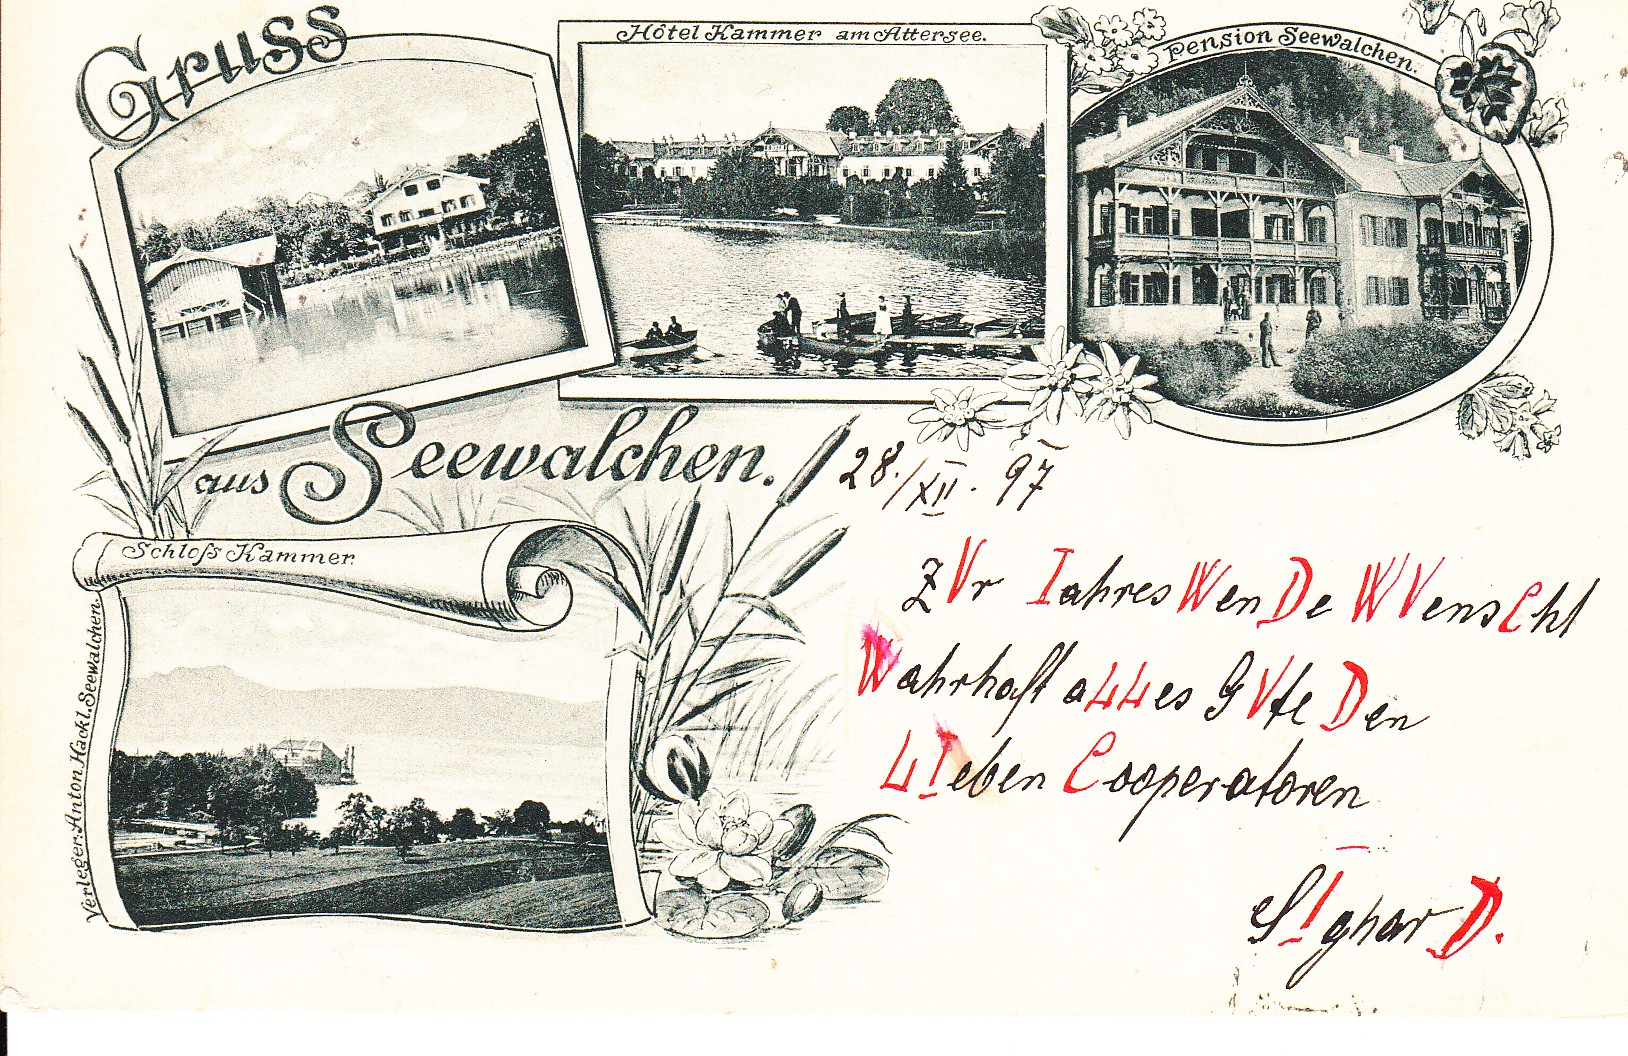 Gruss
aus Seewalchen.
Hôtel Kammer am Attersee.
Pension Seewalchen.
Schloſs Kammer.
Verleger: Anton Hackl. Seewalchen.
28./XII. 97
ZVr IahresWenDe WVensCht
Wahrhaft aLLes GVte Den
LIeben Cooperatoren
SIgharD.